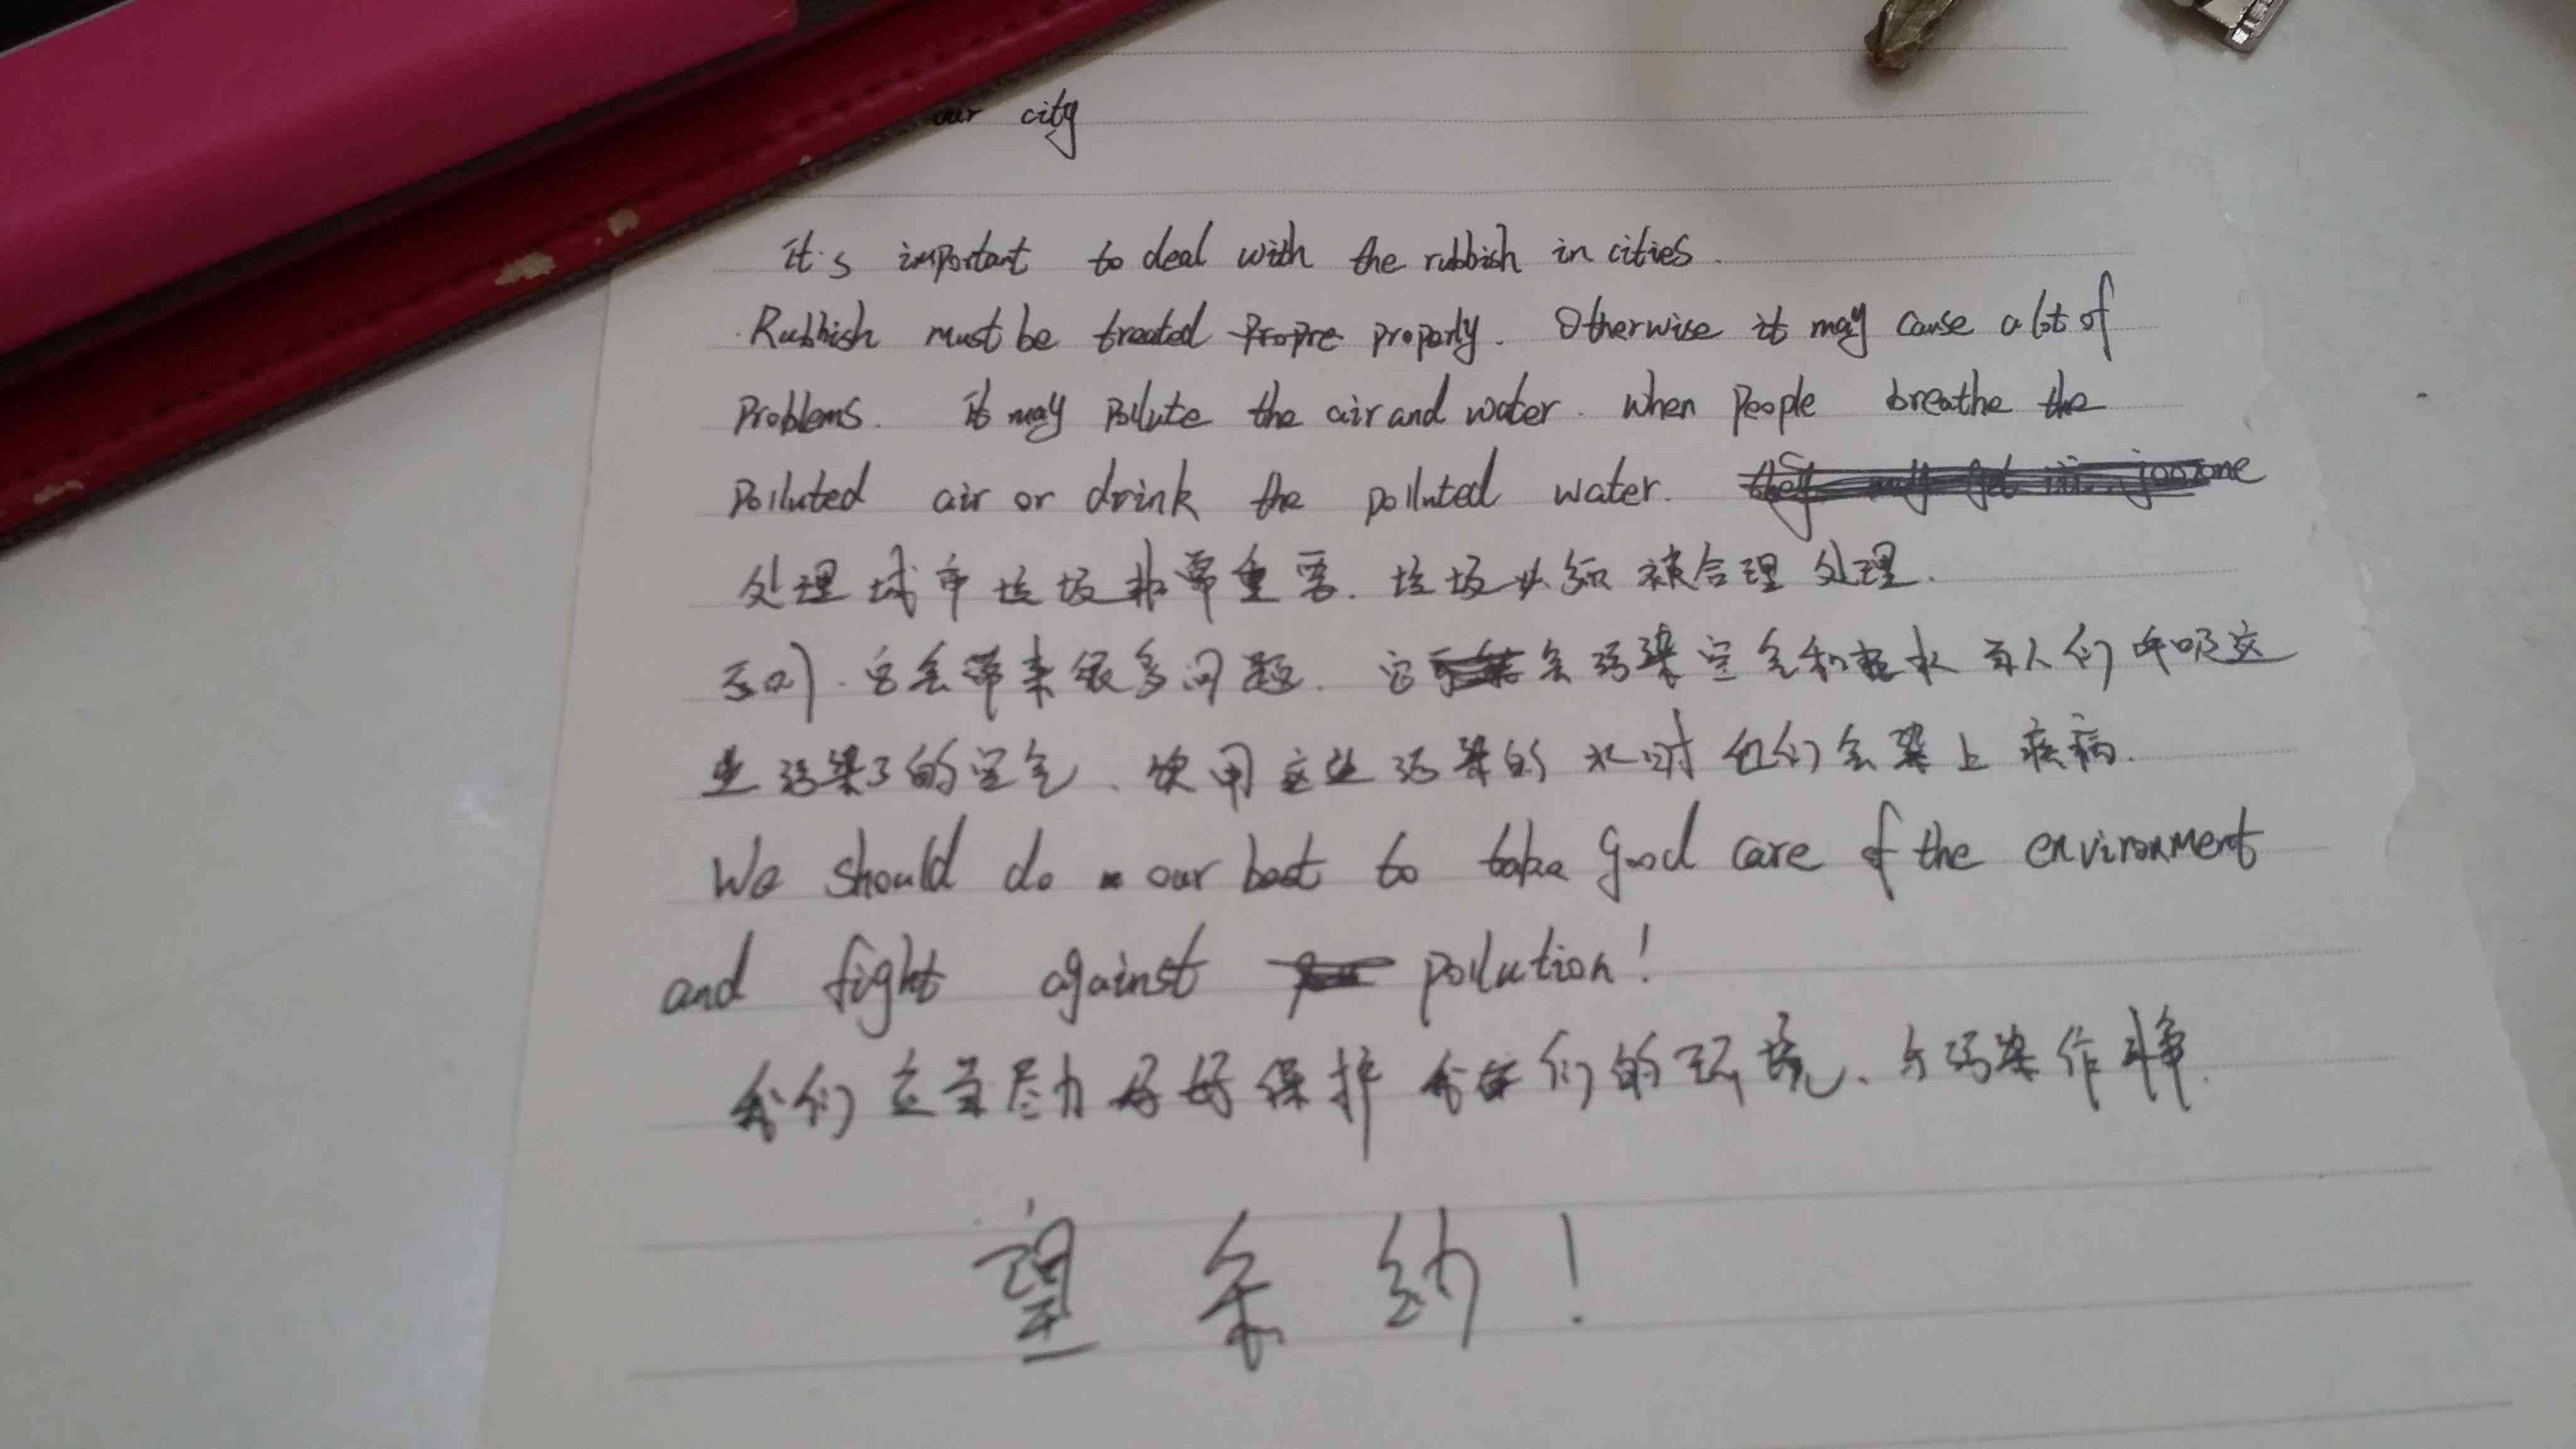 our city
it's important to deal with the rubbish in cities.
Rubbish must be treated Propre properly. Otherwise it may cause a lot of
Problems. It may pollute the air and water. When People breathe the
Polluted air or drink the polluted water.
处理城市垃圾非常重要. 垃圾必须被合理处理.
否则.它会带来很多问题. 它会污染空气和水 当人们呼吸这
些污染了的空气、饮用这些污染的水时他们会染上疾病.
We should do our best to take good care of the environment
and fight against pollution!
我们应当尽力好好保护我们的环境、与污染作斗争.
望采纳!